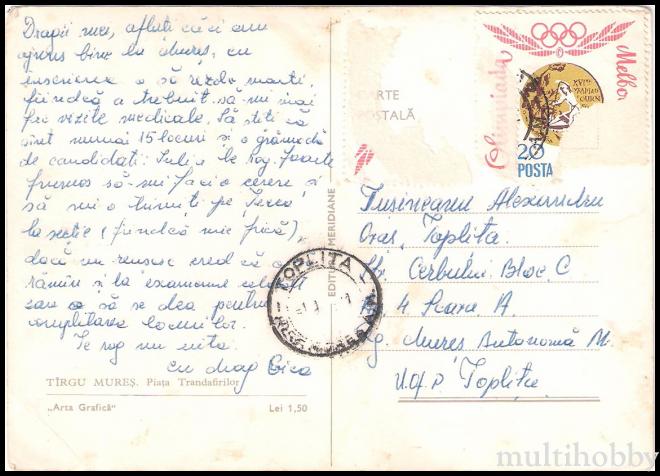 Dragii mei, aflați că eu am
ajuns bine la Mureș, cu
inscrierea o să rezolv marți
fiindcă a trebuit să-mi mai
fac vizite medicale. Să știți că
sînt numai 15 locuri și o grămadă
de candidați. Te rog foarte
frumos să-mi faci o cerere și
să mi-o trimiți pe
la secție (fiindcă mie frică),
dacă nu reușesc cred că o
rămîn și la examenul
sau o să se dea pentru
complitarea locurilor.
Te rog nu uita.
cu drag
TÎRGU MUREȘ. Piața Trandafirilor
„Arta Grafică"
Lei 1,50
EDITURA MERIDIANE
CARTE
POSTALĂ
Olimpiada
Melbo
XVI
20
POSTA
TOPLIȚA
Tușineanu Alexandru
Oraș Toplița
Str. Cerbului Bloc C
Ap 4 Scara A.
Rg. Mureș Autonomă M.
Toplița
multihobby